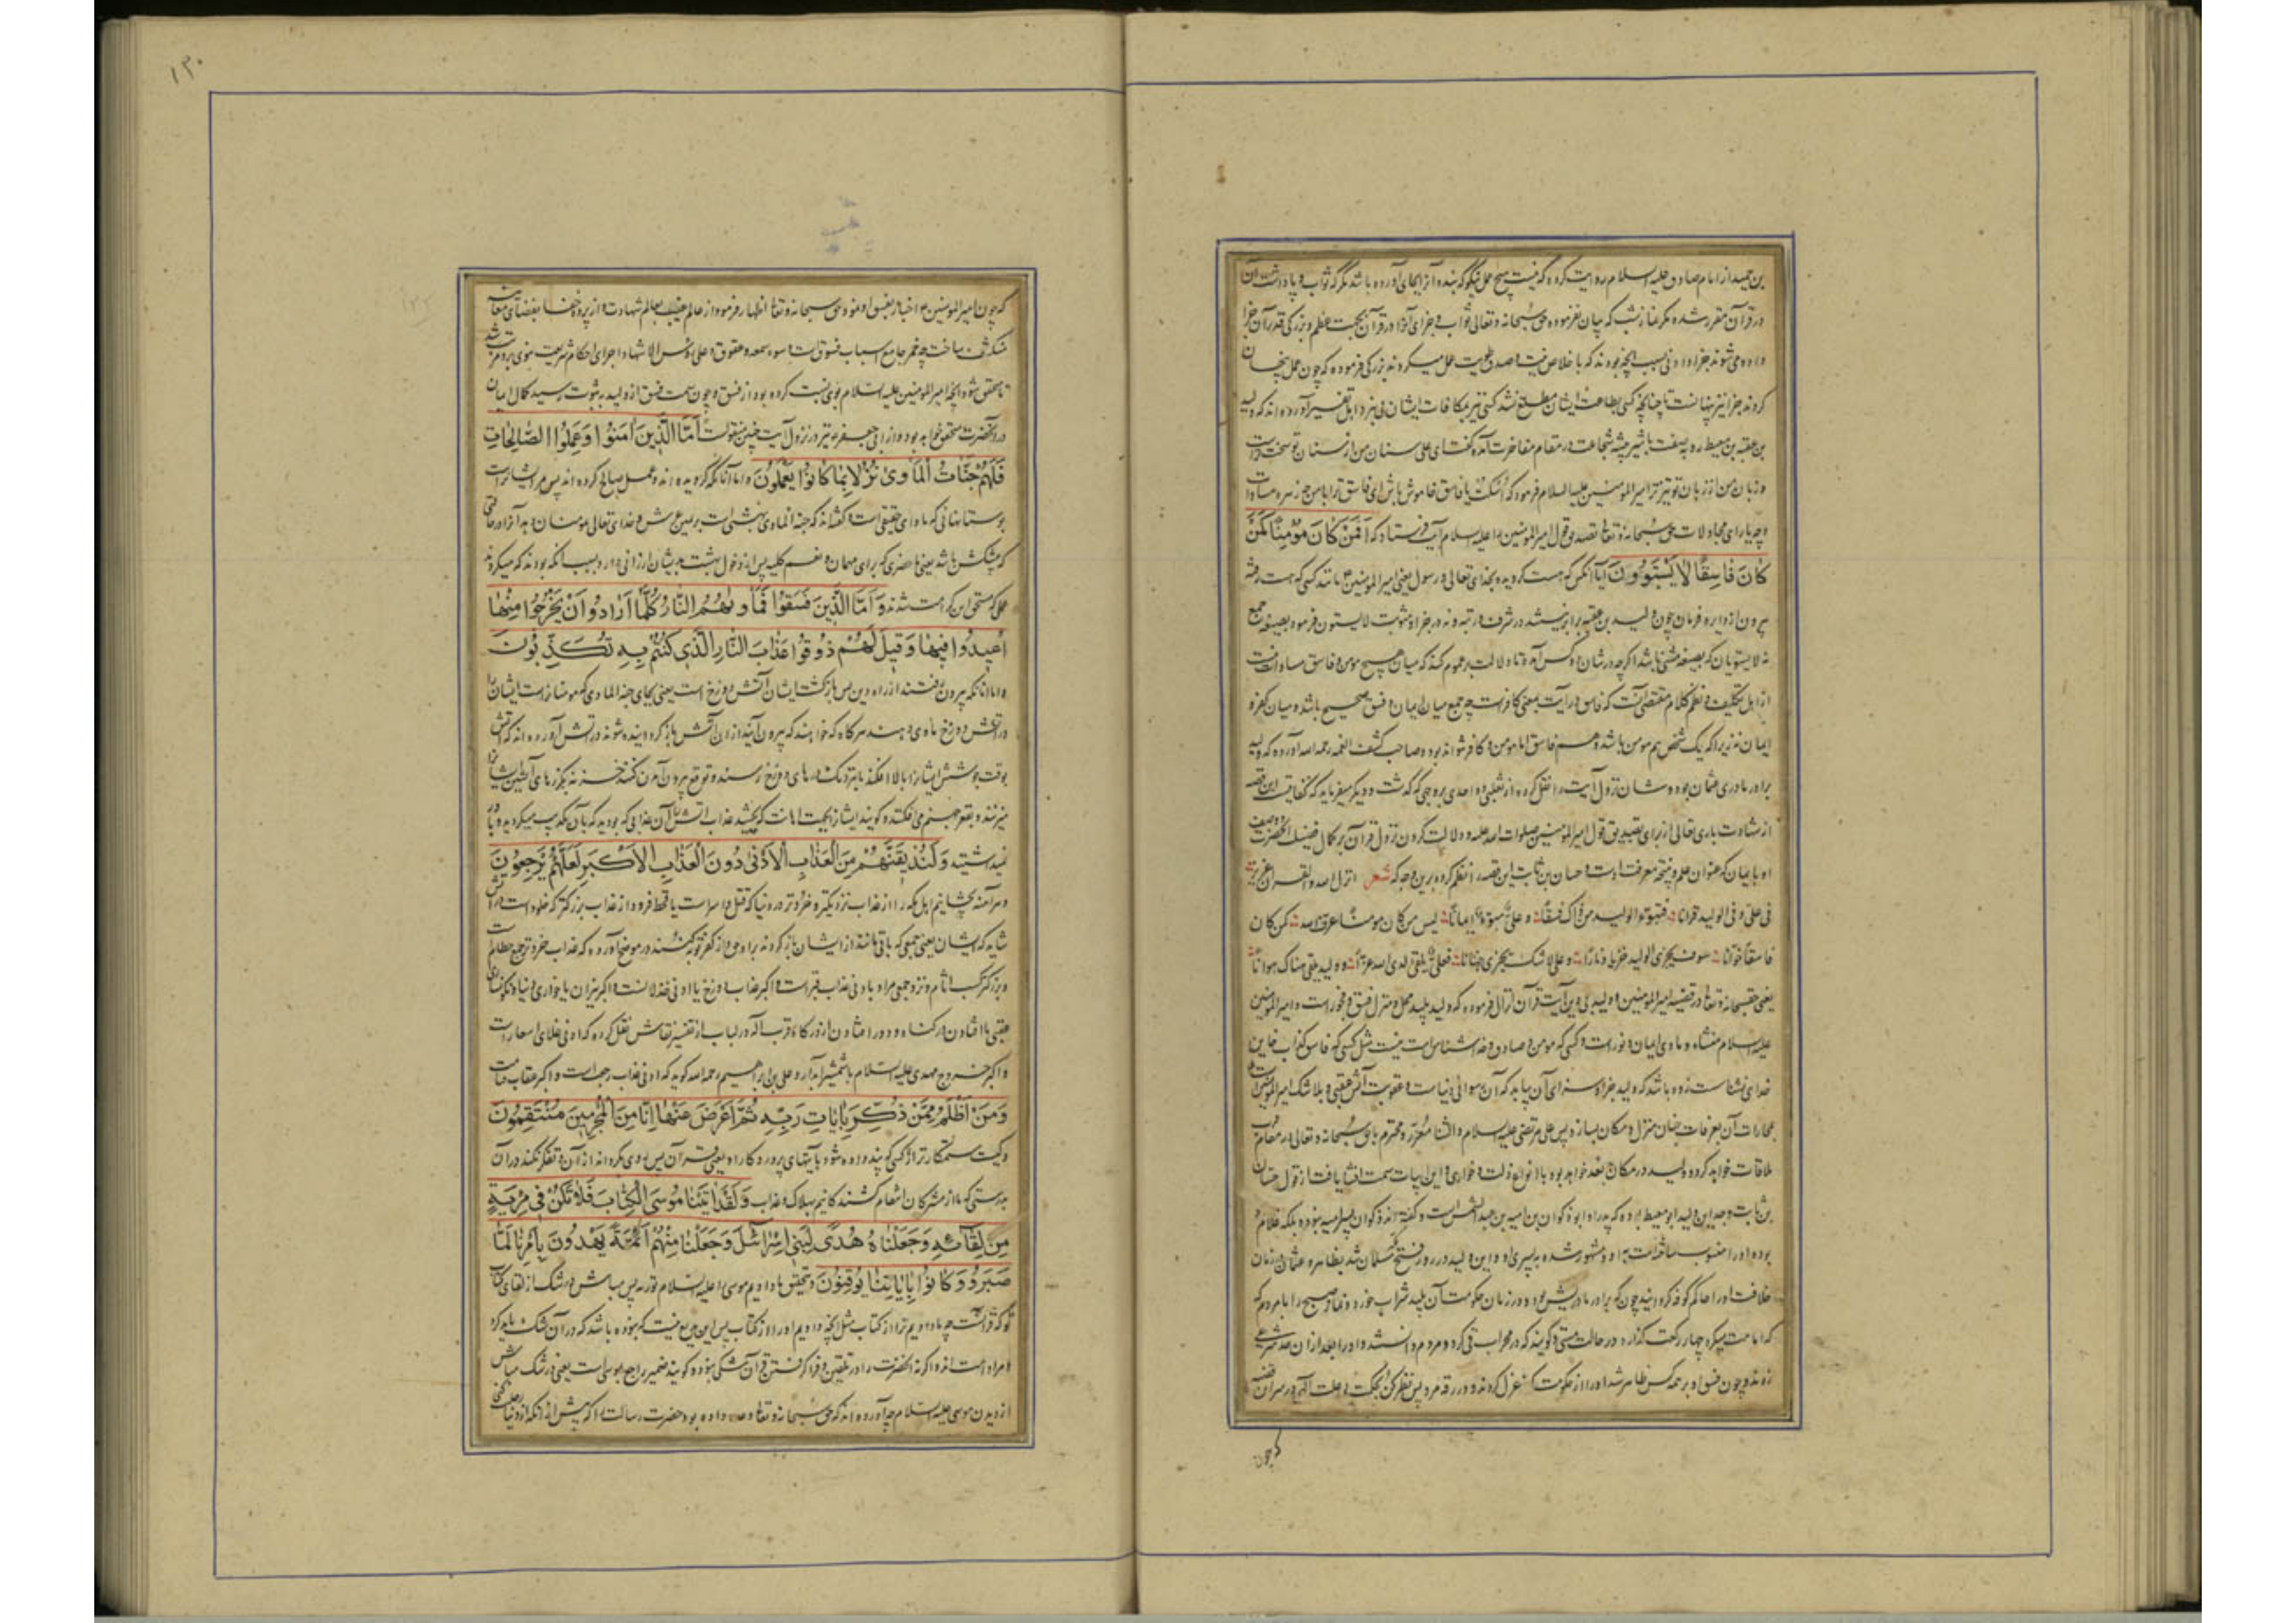 بن حمید از امام صادق علیه السلام روایت کرده که نیست هیچ عمل نیکو که بنده آنرا بجای آورده باشد مگر که ثواب و پاداشت آن
در قرآن مقرر شده مگر نماز شب که بیان نفرموده حق سبحانه و تعالی ثواب و جزای آنرا در قرآن بجهت عظم و بزرکی قدر آن جزا
داده می شوند جزا دادنی بسبب آنچه بودند که با خلاص نیت و صدق طویت عمل میکردند بزرکی فرموده که چون عمل پنهان
کردند جزا نیز پنهانست تا چنانچه کسی بطاعت ایشان مطلع نشد کسی نیز بمکافات ایشان پی نبرد اهل تفسیر آورده اند که ولید
بن عقبه بن معیط در مقام مفاخرت آمده گفت ای علی سنان من از سنان تو سخت تر است
و زبان من از زبان تو تیزتر امیر المؤمنین علیه السلام فرمود که اسکت یا فاسق خاموش باش ای فاسق ترا با من چه زهره مساوات
و چه یارای مجادلات حق سبحانه و تعالی تصدیق قول امیر المؤمنین را علیه السلام آیت فرستاد که اَفَمَنْ كَانَ مُؤْمِنًا كَمَنْ
كَانَ فَاسِقًا لَا يَسْتَوُونَ آیا آنکس که هست کرویده بخدای تعالی و رسول یعنی امیر المؤمنین ع باشد کسی که هست رفته
بیرون از دایره فرمان چون ولید بن عقبه برابر نیستند در شرف و رتبه و نه در جزا و مثوبت لایستون فرمود بصیغه جمع
نه لایستویان که بصیغه مثنی باشد اگر چه در شان دو کس آمده تا دلالت بر عموم کند که میان هیچ مومن و فاسق مساوات نیست
از اهل تکلیف و نظم کلام مقتضی آنست که فاسق در آیت بمعنی کافر است چه جمع میان ایمان و فسق صحیح باشد نه میان کفر و
ایمان نه زیرا که یک شخص هم مومن باشد و هم فاسق اما مومن و کافر نتواند بود و صاحب کشف الغمه رحمه الله آورده که ولید
برادر مادری عثمان بوده و شان نزول آیت را نقل کرده از ثعلبی و واحدی بر وجهی که گذشت و دیگر میفرماید که کفایت این قصه
از شهادت باری تعالی از برای تصدیق قول امیر المؤمنین صلوات الله علیه و دلالت کردن نزول قرآن بر کمال فضیلت آنحضرت و وصف
او با ایمان که عنوان علم و نتیجه معرفت است و حسان بن ثابت این قصه را نظم کرده برین وجه که شعر انزل الله و القرآن عزیز
فی علی و فی الولید قرآنا فتبوّء الولید من ذاک فسقا و علی مبوّء ایمانا لیس من کان مومنا عرف الله کمن کان
فاسقا خوانا سوف یجزی الولید خزیا و نارا و علی لا شک یجزی جنانا فعلی یلقی لدی الله عزا و ولید یلقی هناک هوانا
یعنی حق سبحانه و تعالی در قضیه امیر المؤمنین و ولید آیت قرآن انزال فرموده که ولید پلید محل و منزل فسق و فجور است و امیر المؤمنین
علیه السلام منشاء و ماوی ایمان و نور است و کسی که مومن و صادق و خداشناس است نیست مثل کسی که فاسق کذاب خاین
خدای نشناسنده باشد که ولید جزا و سزای آن یابد که آن رسوائی دنیا است و عقوبت آتش عقبی و بلا شک امیر المؤمنین علی
بمجازات آن بغرفات جنان منزل و مکان سازد پس علی مرتضی علیه السلام و الثنا معزز و محترم با حق سبحانه و تعالی در مقام قرب
ملاقات خواهد کرد و ولید در مکان بعد خواهد بود با انواع ذلت و خواری و این ابیات سمت افشا یافت از قول حسان
بن ثابت و جد این ولید ابو معیط بوده که پدر او ابو ذکوان بن امیه بن عبد الشمس است و گفته اند ذکوان پسر امیه نبوده بلکه غلام او
بوده او را منسوب ساخته است به او و مشهور شده به پسری او و این ولید در روز فتح مسلمان شد بظاهر و عثمان در زمان
خلافت او را حاکم کوفه کردانید چون که برادر مادریش بوده و در زمان حکومت آن پلید شراب خورد و نماز صبح را با مردم که
که امامت میکرد چهار رکعت گذارد در حالت مستی و گویند که در محراب قی کرد و مردم دانستند و او را بعد از ان حد شرعی
زدند و چون فسق او بر همه کس ظاهر شد او را از حکومت عزل کردند و در رقه مرد پس نظر کن بحکمت و علت الهی در سر این قضیه
که چون
۱۳۰
که چون امیر المؤمنین ع اخبار بفسق او نمود حق سبحانه و تعالی اظهار فرمود از عالم غیب بعالم شهادت و از پرده خفا بفضای
منکشف ساخت چه خمر جامع اسباب فسوق است و سوء سمعه و عقوق و علی رؤس الاشهاد اجرای احکام شریعت نبوی برو مترتب شد
تا محقق شود آنچه امیر المؤمنین علیه السلام بوی نسبت کرده بود از فسق و چون سمت فسق از ولید به ثبوت رسید کمال ایمان
در آنحضرت محقق خواهد بود و از ابی جعفر ع نیز در نزول آیت چنین منقولست اَمَّا الَّذِينَ اٰمَنُوا وَعَمِلُوا الصَّالِحَاتِ
فَلَهُمْ جَنَّاتُ الْمَأْوىٰ نُزُلًا بِمَا كَانُوا يَعْمَلُونَ و اما آنانکه کرویده اند و عمل صالح کرده اند پس مر ایشانراست
بوستانهائی که ماوای حقیقی است و گفته اند که جنة الماوی بهشتی است بر یمین عرش و خدای تعالی مومنان را بدانجا در
که پیشکش باشد یعنی ماحضری که برای مهمان و نعیم کلیه پس از دخول بهشت بدیشان ارزانی دارد بسبب آنکه بودند که میکردند
عملی که مستحق این کرامت شدند وَاَمَّا الَّذِينَ فَسَقُوا فَمَأْوٰىهُمُ النَّارُ كُلَّمَا اَرَادُوا اَنْ يَخْرُجُوا مِنْهَا
اُعِيدُوا فِيهَا وَقِيلَ لَهُمْ ذُوقُوا عَذَابَ النَّارِ الَّذِي كُنْتُمْ بِهِ تُكَذِّبُونَ
و اما آنانکه بیرون رفتند از راه دین پس بازگشت ایشان آتش دوزخ است یعنی بجای جنة الماوی که مومنانراست ایشان را
در آتش دوزخ ماوی دهند هر گاه که خواهند که بیرون آیند از ان آتش باز گردانیده شوند در آتش آورده اند که آتش
بوقت جوشش ایشانرا بالا افکند تا نزدیک درهای دوزخ رسند و توقع بیرون آمدن کنند خزنه بگرزهای آتشین ایشانرا
میزنند و بقعر جهنم می افکنند و گویند ایشانرا بجهت اهانت که بچشید عذاب آتش آن عذابی که بودید که بآن تکذیب میکردید و باور
نمیداشتید وَلَنُذِيقَنَّهُمْ مِنَ الْعَذَابِ الْاَدْنٰى دُونَ الْعَذَابِ الْاَكْبَرِ لَعَلَّهُمْ يَرْجِعُونَ
و هر آینه بچشانیم اهل مکه را از عذاب نزدیکتر و خردتر در دنیا که قتل و اسر است یا قحط فرود از عذاب بزرگتر که خلود است در آتش
شاید که ایشان یعنی جمعی که باقی ماننده از ایشان باز گردند براه حق و از کفر توبه کنند در موضح آورده که عذاب خرد ترجمع حطام است
و بزرگتر کسب آثام و نزد جمعی مراد باد نی عذاب قبر است و اکبر عذاب دوزخ یا ادنی خذلانست و اکبر نیران یا خواری دنیا و نکونساری
عقبی یا افتادن در گناه و دور افتادن از درگاه قرب اله در لباب از تفسیر نقاش نقل کرده که ادنی غلای اسعار است
و اکبر خروج مهدی علیه السلام با شمشیر آبدار و علی بن ابراهیم رحمه الله گوید که ادنی عذاب رجعت است و اکبر عقاب قیامت
وَمَنْ اَظْلَمُ مِمَّنْ ذُكِّرَ بِاٰيَاتِ رَبِّهِ ثُمَّ اَعْرَضَ عَنْهَا اِنَّا مِنَ الْمُجْرِمِينَ مُنْتَقِمُونَ
و کیست ستمکارتر از کسی که پند داده شود بآیتهای پروردگار او یعنی قرآن پس روی بگرداند از آن و تفکر نکند در آن
بدرستی که ما از مشرکان انتقام کشنده کانیم بهلاک و عذاب وَلَقَدْ اٰتَيْنَا مُوسَى الْكِتَابَ فَلَا تَكُنْ فِي مِرْيَةٍ
مِنْ لِقَائِهِ وَجَعَلْنَاهُ هُدًى لِبَنِي اِسْرَائِيلَ وَجَعَلْنَا مِنْهُمْ اَئِمَّةً يَهْدُونَ بِاَمْرِنَا لَمَّا
صَبَرُوا وَكَانُوا بِاٰيَاتِنَا يُوقِنُونَ و بتحقیق ما دادیم موسی را علیه السلام توریه پس مباش در شک از لقای کتاب
تو که قرآنست چه ما دادیم ترا از کتاب مثل آنچه دادیم او را از کتاب پس این بدیع نیست که نبوده باشد که در آن شک باید کرد
و مراد امت اند و اگر نه آنحضرت را در تلقین و فرا گرفتن قرآن شکی نبوده و گویند ضمیر راجع بموسی است یعنی در شک مباش
از دیدن موسی علیه السلام چه آورده اند که حق سبحانه و تعالی وعده داده بود حضرت رسالت را که پیش از آنکه از دنیا رحلت کنی